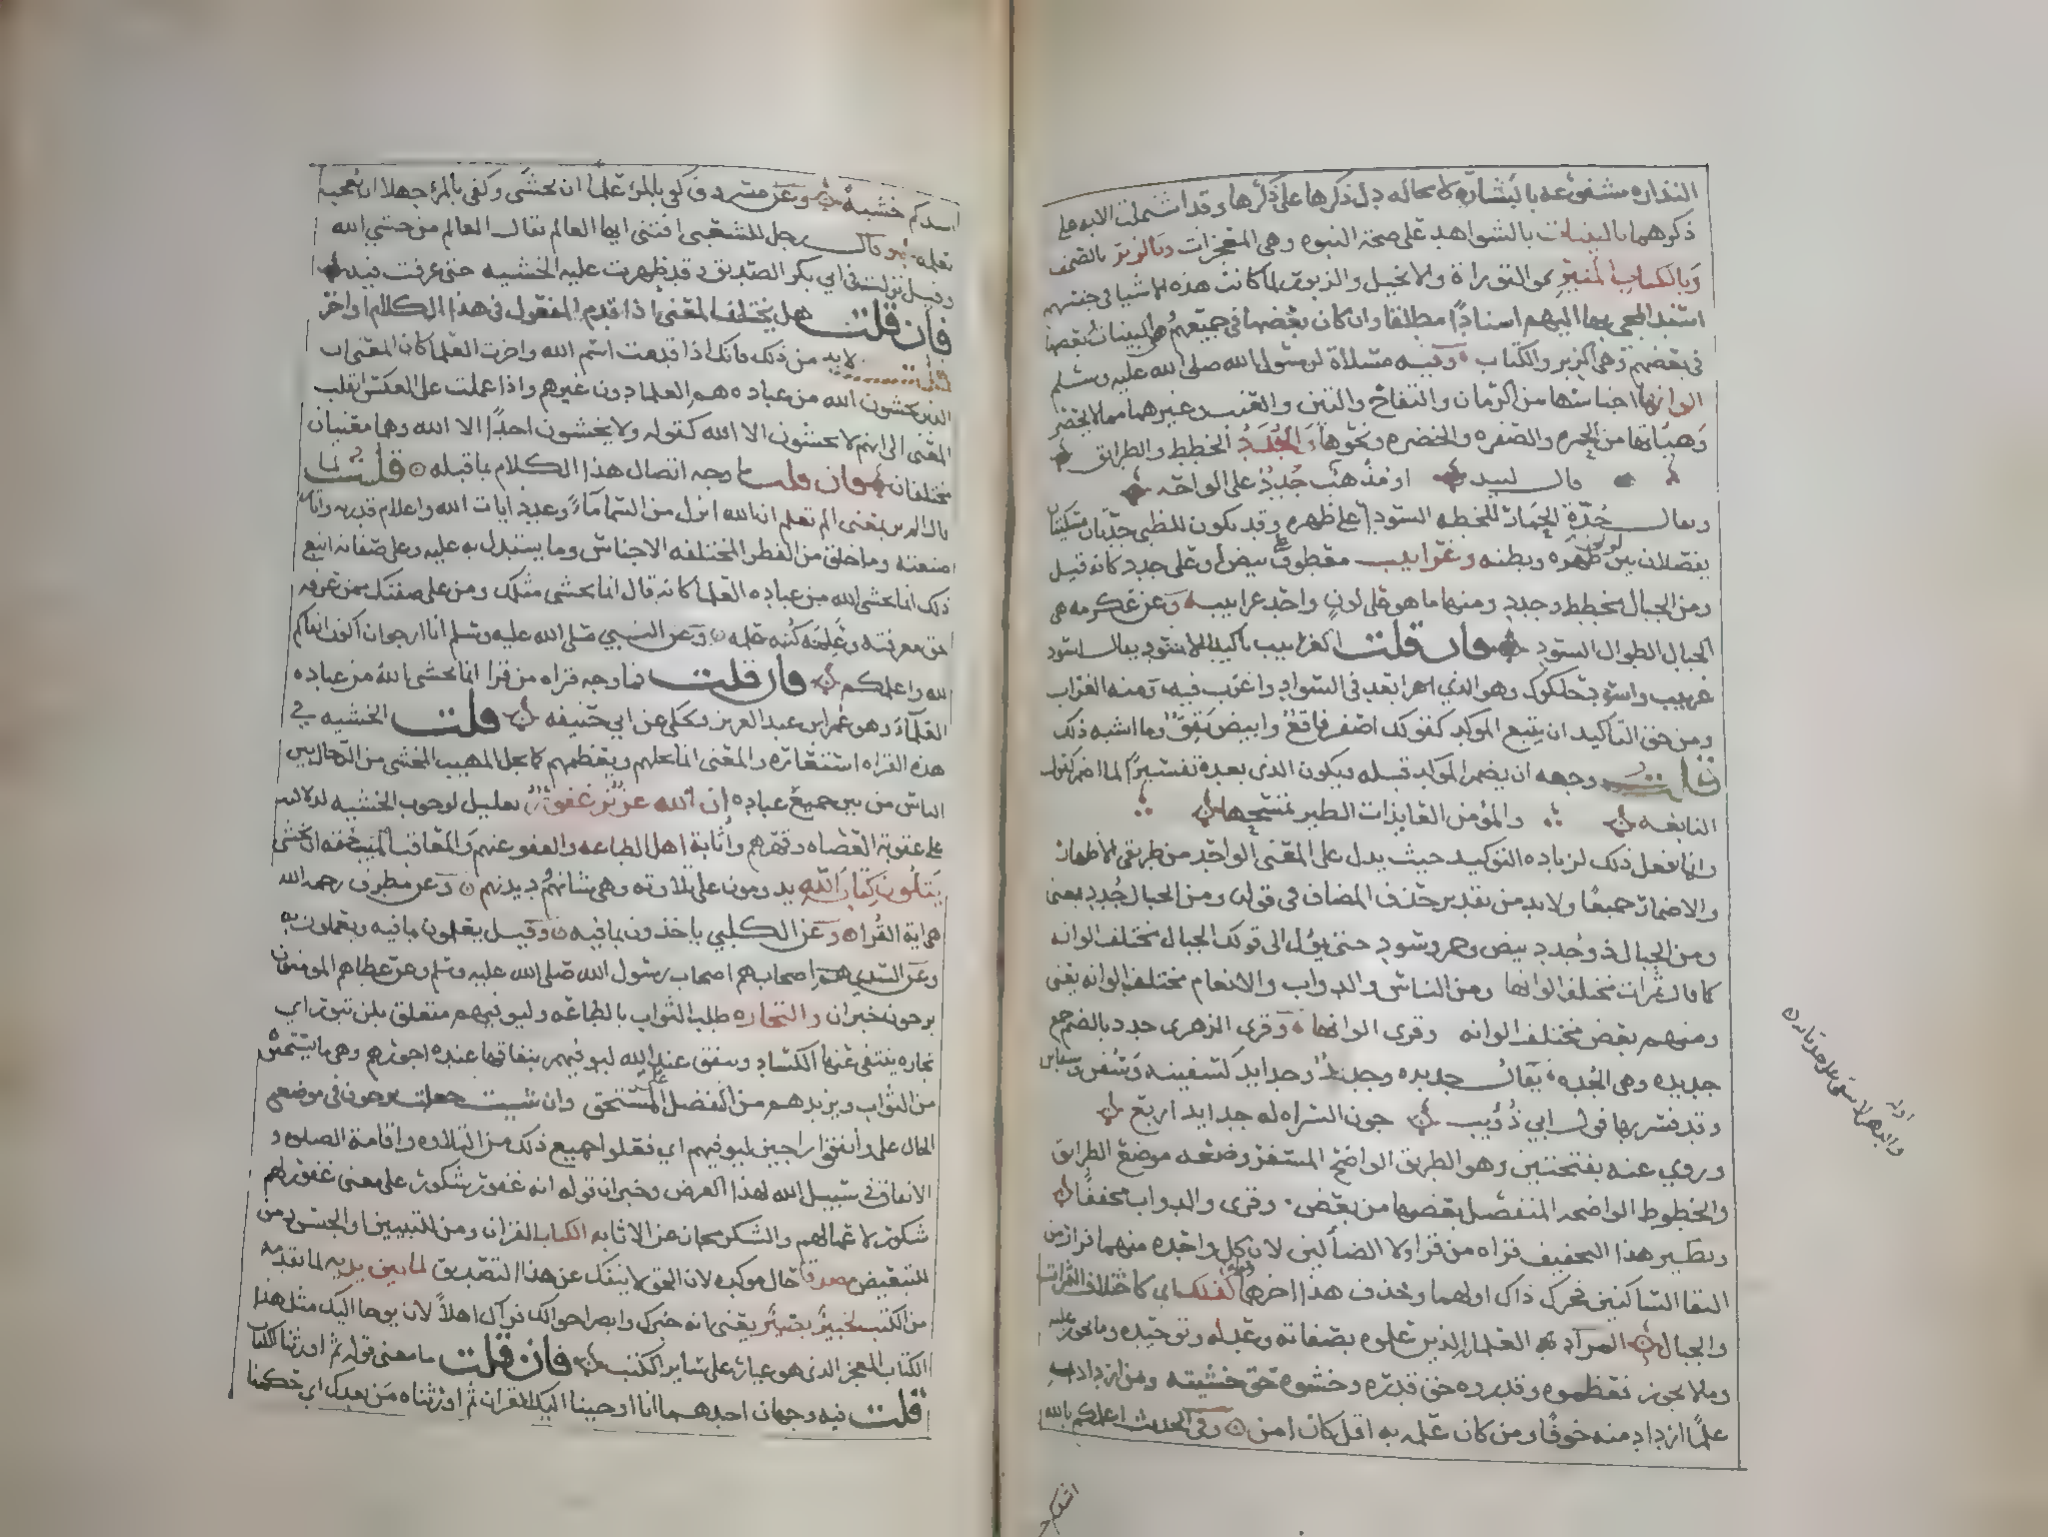 النذاره مشفوعه بالبشاره لا محاله دل ذكرها على ذكرها وقد اشتملت الايه على
ذكرهما بالبينات بالشواهد على صحة النبوه وهي المعجزات وبالزبر بالصحف
وبالكتاب المنير نحو التوراة والانجيل والزبور لما كانت هذه الاشيا في جنسهم
اسند المجي بها اليهم اسنادًا مطلقا وان كان بعضها في جميعهم وهي البينات وبعضها
في بعضهم وهي الزبر والكتاب وفيه مسلاة لرسول الله صلى الله عليه وسلم
الوانها اجناسها من الرمان والتفاح والتين والعنب وغيرهما مما لا يحصر
وهياتها من الحمره والصفره والخضره ونحوها والجُدَدُ الخطط والطرايق
قال لبيد او مذهب جُدَدٌ على الواحه
ويقال جُدّة الحمار للخطه السودا على ظهره وقد يكون للظبي جدتان مسكيتان
يفصلان بين لوني ظهره وبطنه وغرابيب معطوف على بيض او على جدد كانه قيل
ومن الجبال مخطط وجدد ومنها ما هو على لون واحد غرابيب وعن عكرمه هي
الجبال الطوال السود فان قلت الغرابيب تاكيد للاسود يقال اسود
غربيب واسود حلكوك وهو الذي ابعد في السواد واغرب فيه ومنه الغراب
ومن حق التاكيد ان يتبع الموكد كقولك اصفر فاقع وابيض يقق وما اشبه ذلك
قلت وجهه ان يضمر الموكد قبله ويكون الذي بعده تفسيرًا لما اضمر كقول
النابغه والمؤمن العايذات الطير تمسحها
وانما يفعل ذلك لزياده التوكيد حيث يدل على المعنى الواحد من طريقي الاظهار
والاضمار جميعًا ولا بد من تقدير حذف المضاف في قوله ومن الجبال جُدد بمعنى
ومن الجبال ذو جُدد بيض وحمر وسود حتى يؤل الى قولك الجبال مختلف الوانه
كما قال ثمرات مختلفا الوانها ومن الناس والدواب والانعام مختلف الوانه يعني
ومنهم بعض مختلف الوانه وقرى الوانها وقرى الزهري جدد بالضم جمع
جديده وهي الجُده يقال جديده وجدد وجدايد كسفينه وسُفن وسفاين
وقد فسر بها قول ابي ذُؤيب جون السراه له جدايد اربع
وروي عنه بفتحتين وهو الطريق الواضح المسفر وضعه موضع الطرايق
والخطوط الواضحه المنفصل بعضها من بعض وقرى والدواب مخففًا
ونظير هذا التخفيف قراه من قرا ولا الضألين لان كل واحده منهما فرار من
التقا الساكنين فحرك ذاك اولهما وحذف هذا اخرهما قوله كذلك اي كاختلاف الثمرات
والجبال المراد العلما الذين علموه بصفاته وعدله وتوحيده وما يجوز عليه
وما لا يجوز فعظموه وقدروه حق قدره وخشوه حق خشيته ومن ازداد به
علمًا ازداد منه خوفًا ومن كان علمه به اقل كان امن وفي الحديث اعلمكم بالله
اشدكم
اشدكم خشية وعن مسروق كفى بالمرء علمًا ان يخشى وكفى بالمرء جهلا ان يعجب
بعلمه وقال رجل للشعبي افتني ايها العالم فقال العالم من خشي الله
وقيل نزلت في ابي بكر الصديق وقد ظهرت عليه الخشيه حتى عرفت فيه
فان قلت هل يختلف المعنى اذا قدم المفعول في هذا الكلام او اخر
قلت لا بد من ذلك فانك اذا قدمت اسم الله واخرت العلما كان المعنى ان
الذين يخشون الله من عباده هم العلما دون غيرهم واذا عملت على العكس انقلب
المعنى الى انهم لا يخشون الا الله كقوله ولا يخشون احدًا الا الله وهما معنيان
مختلفان فان قلت ما وجه اتصال هذا الكلام بما قبله قلت لما
قال الم تر بمعنى الم تعلم ان الله انزل من السما مآءً وعدد ايات الله واعلام قدرته واثار
صنعته وما خلق من الفطر المختلفه الاجناس وما يستدل به عليه وعلى صفاته اتبع
ذلك انما يخشى الله من عباده العلما كانه قال انما يخشى مثلك ومن على صفتك ممن عرفه
حق معرفته وعلمه كُنه علمه وعن النبي صلى الله عليه وسلم انا ارجو ان اكون اتقاكم
لله واعلمكم فان قلت فما وجه قراه من قرا انما يخشى الله من عباده
العلمآءَ وهو عمر ابن عبد العزيز ويحكى عن ابي حنيفه قلت الخشيه في
هذه القراه استعاره والمعنى انما يجلهم ويعظمهم كما يجل المهيب المخشى من الرجال بين
الناس من بين جميع عباده ان الله عزيز غفور تعليل لوجوب الخشيه لدلالته
على عقوبة العصاه وقهرهم واثابة اهل الطاعه والعفو عنهم والمعاقب المثيب حقه ان يخشى
يَتلُون كتاب الله يدومون على تلاوته وهي شانهم وديدنهم وعن مطرف رحمه الله
هي اية القُراء وعن الكلبي ياخذون بما فيه وقيل يعلمون ما فيه ويعملون به
وعن السدي هم اصحاب رسول الله صلى الله عليه وسلم وعن عطا هم المومنون
يرجون خبر ان والتجاره طلب الثواب بالطاعه وليوفيهم متعلق بلن تبور اي
تجاره ينتفي عنها الكساد وتنفق عند الله ليوفيهم بنفاقها عنده اجورهم وهي ما استحقوه
من الثواب ويزيدهم من الفضل على المستحق وان شيت جعلت يرجون في موضع
الحال على وانفقوا راجين ليوفيهم اي فعلوا جميع ذلك من التلاوه واقامة الصلوه و
الانفاق في سبيل الله لهذا الغرض وخبر ان قوله انه غفور شكور على معنى غفور لهم
شكور لاعمالهم والشكر مجاز عن الاثابه الكتاب القران ومن للتبيين او الجنس ومن
للتبعيض مصدقا حال موكده لان الحق لا ينفك عن هذا التصديق لما بين يديه لما تقدمه
من الكتب لخبير بصير يعني انه خبرك وابصر احوالك فرآك اهلاً لان يوحا اليك مثل هذا
الكتاب المعجز الذي هو عيار على ساير الكتب فان قلت ما معنى قوله ثم اورثنا الكتاب
قلت فيه وجهان احدهما انا اوحينا اليك القران ثم اورثناه من بعدك اي حكمنا